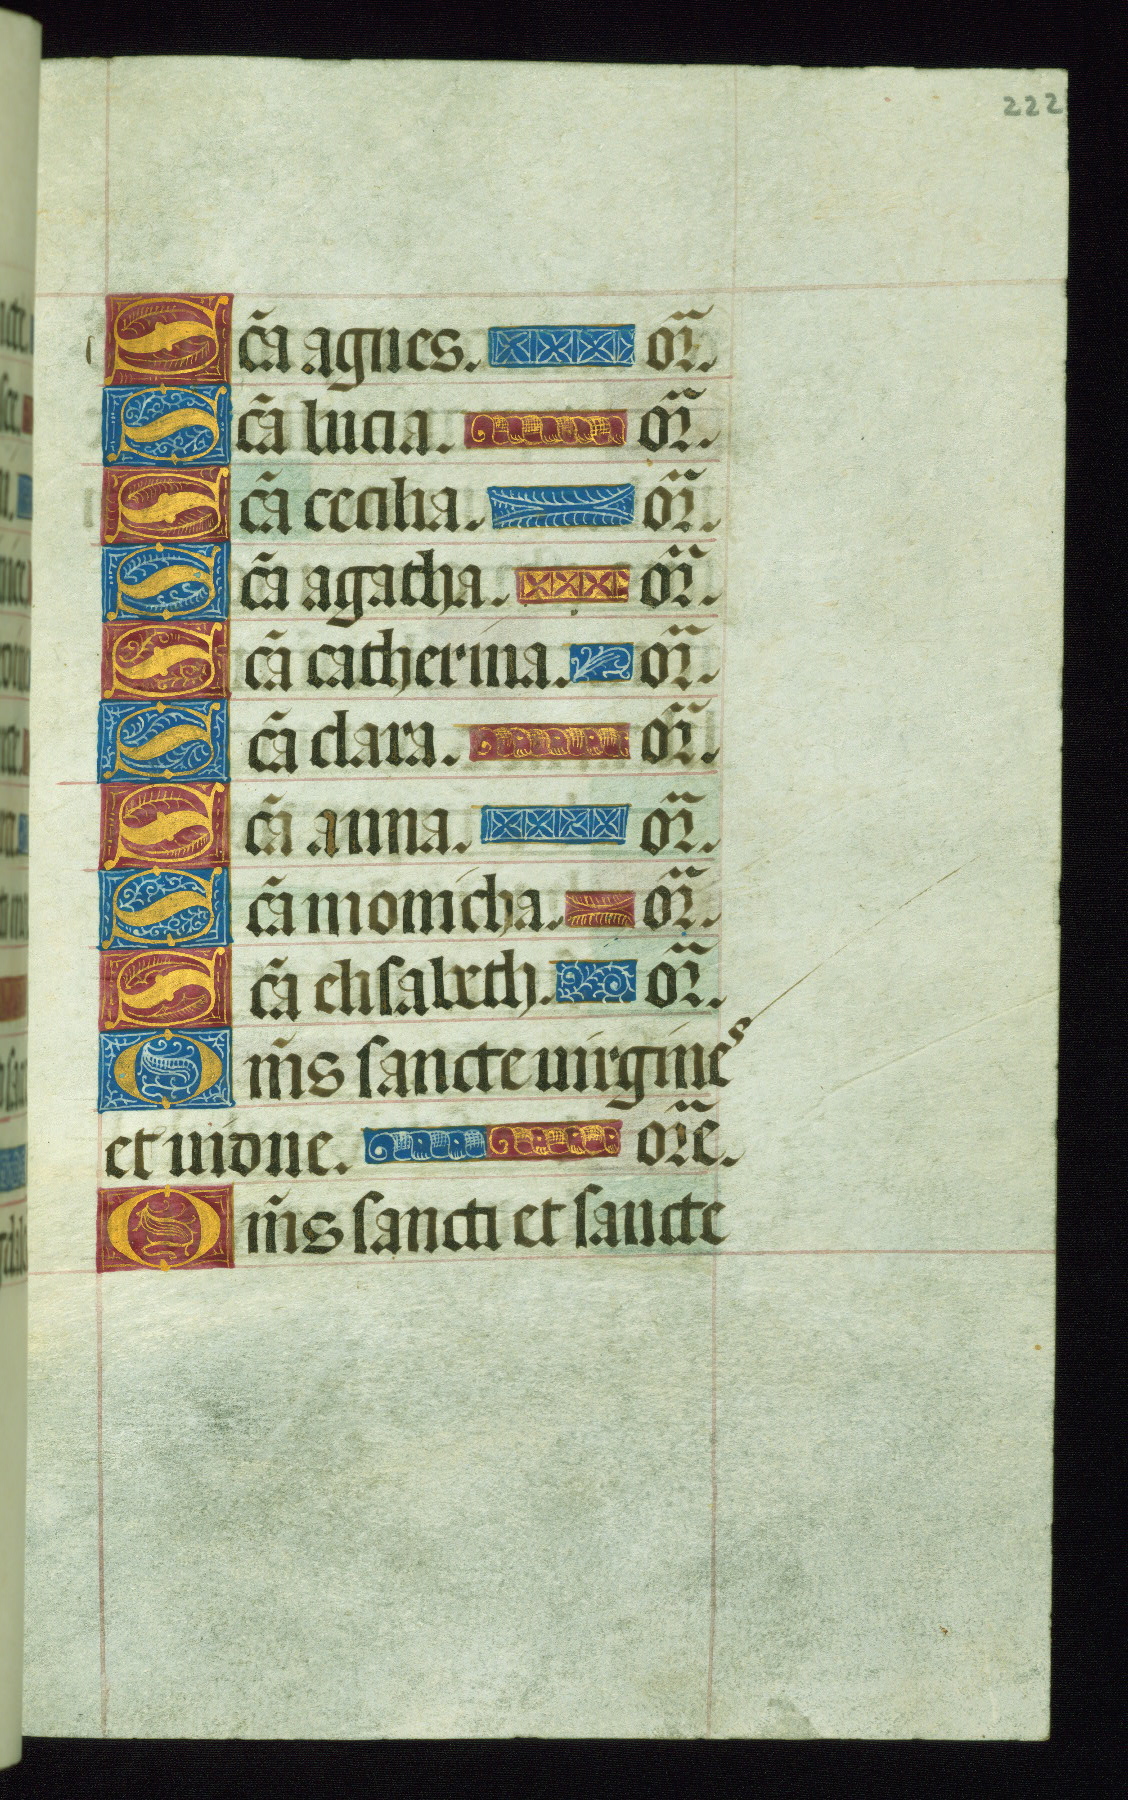 222
Sc̄a agnes. or̄.
Sc̄a lucia. or̄.
Sc̄a cecilia. or̄.
Sc̄a agatha. or̄.
Sc̄a catherina. or̄.
Sc̄a clara. or̄.
Sc̄a anna. or̄.
Sc̄a monicha. or̄.
Sc̄a elisabeth. or̄.
Om̄s sancte uirgines
et uidue. or̄e.
Om̄s sancti et sancte